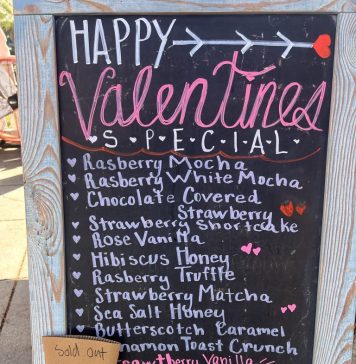 HAPPY
Valentines
S·P·E·C·I·A·L
Rasberry Mocha
Raspberry White Mocha
Chocolate Covered
Strawberry
Strawberry Shortcake
Rose Vanilla
Hibiscus Honey
Rasberry Truffle
Strawberry Matcha
Sea Salt Honey
Butterscotch Caramel
nnamon Toast Crunch
Vanilla
sold out